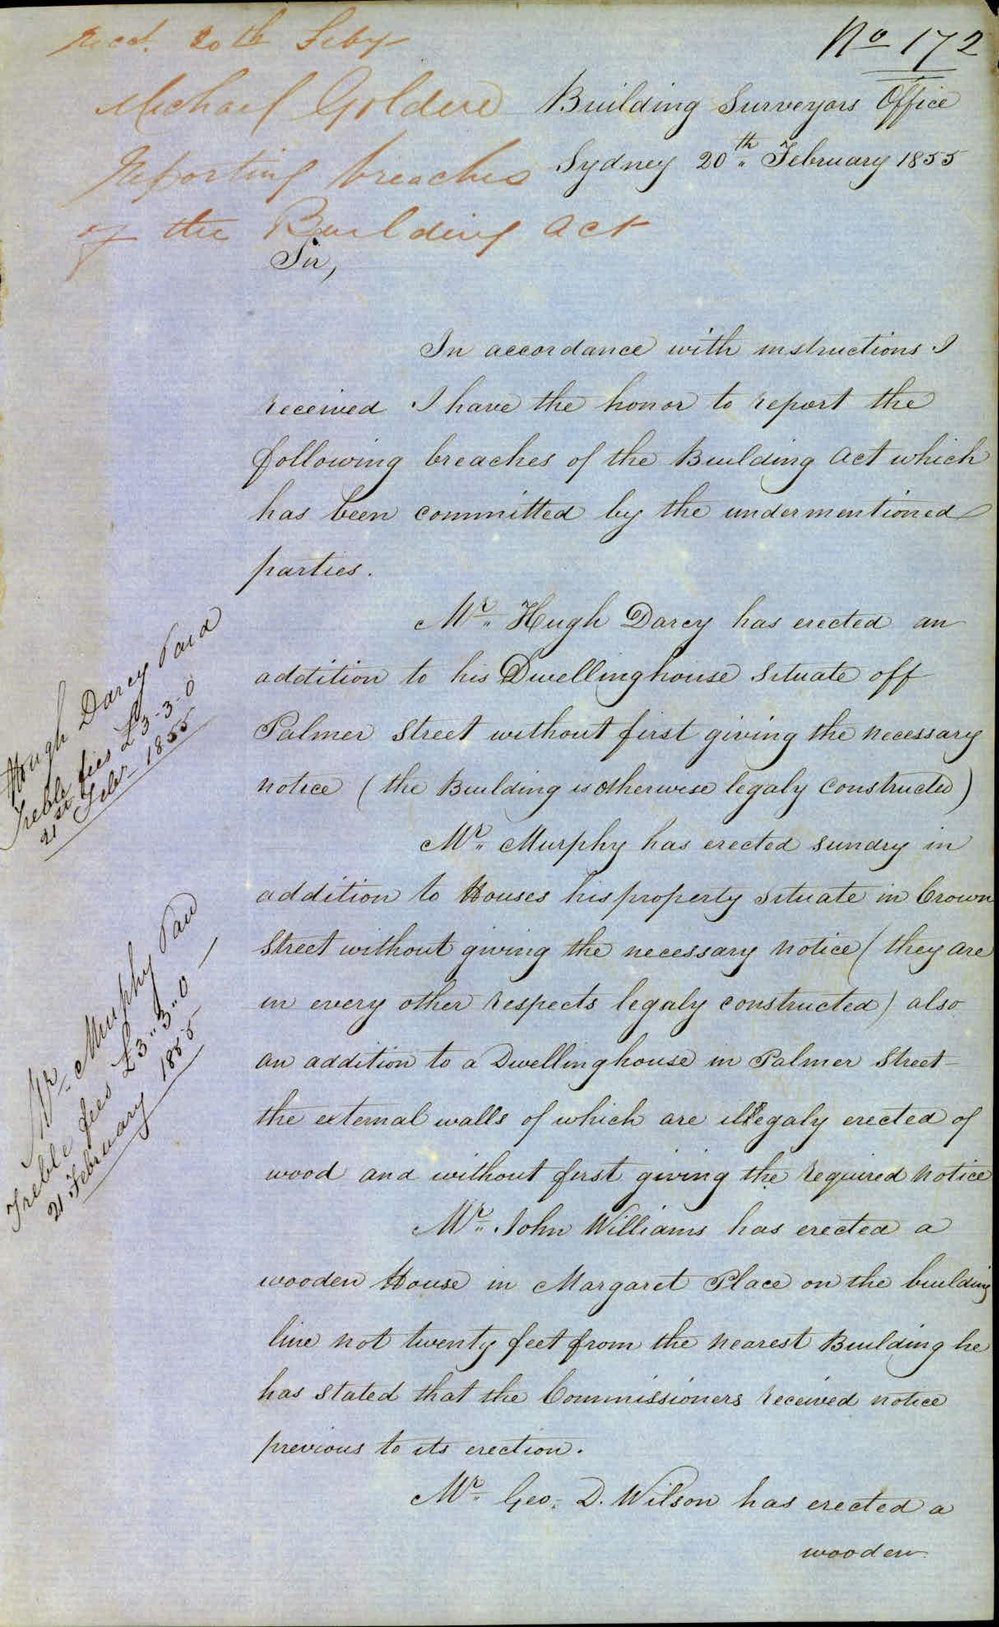 No 172
Recd. 20th Feby
Michael Golden
Reporting breaches
of the Building Act
Building Surveyors Office
Sydney 20th February 1855
Sir,
In accordance with instructions I
received I have the honor to report the
following breaches of the Building Act which
has been committed by the undermentioned
parties.
Mr. Hugh Darcy has erected an
addition to his Dwellinghouse situate off
Palmer Street without first giving the necessary
notice (the Building is otherwise legaly constructed)
Mr. Murphy has erected sundry in
addition to Houses his property situate in Crown
Street without giving the necessary notice (they are
in every other respects legaly constructed) also
an addition to a Dwellinghouse in Palmer Street
the external walls of which are illegaly erected of
wood and without first giving the required notice
Mr. John Williams has erected a
wooden House in Margaret Place on the building
line not twenty feet from the nearest Building he
has stated that the Commissioners received notice
previous to its erection.
Mr. Geo. D. Wilson has erected a
wooden
Hough Darcy Paid
Treble fees £3-3-0
21st Febr 1855
Mr. Murphy Paid
Treble fees £3"3"0
21 February 1855